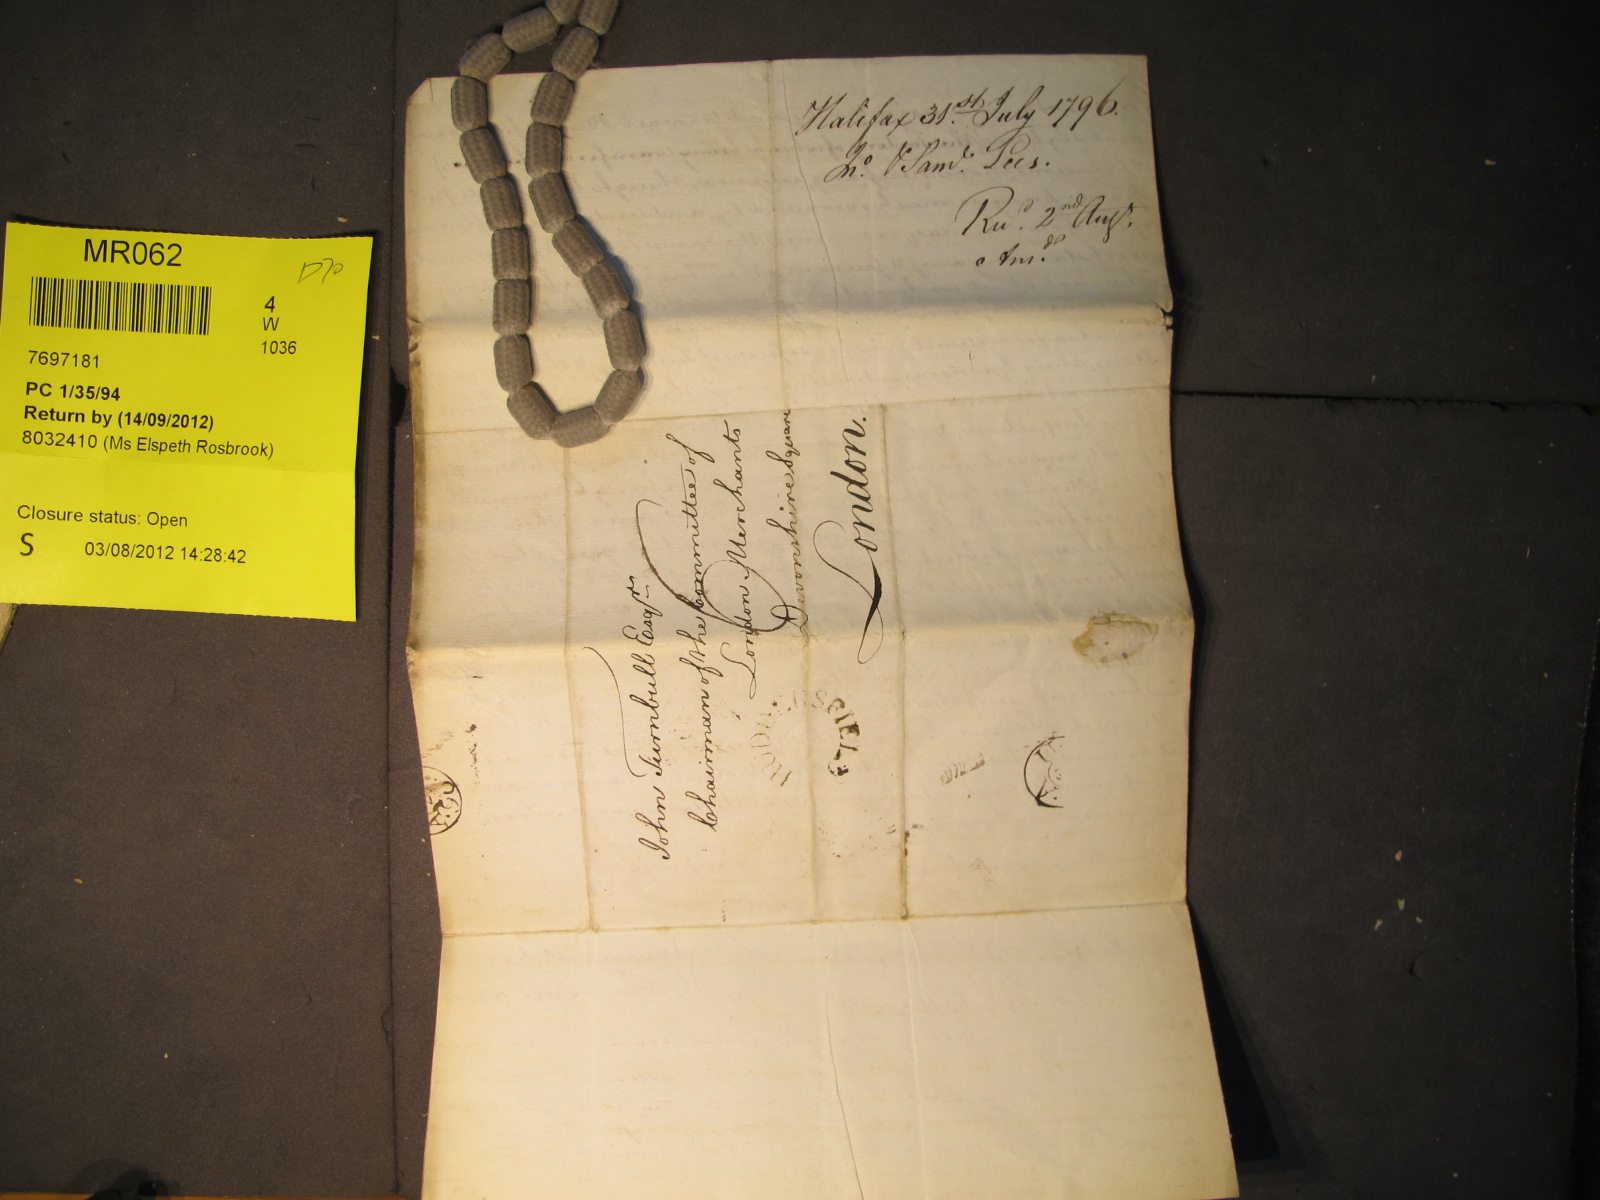 MR062
D70
4
W
1036
7697181
PC 1/35/94
Return by (14/09/2012)
8032410 (Ms Elspeth Rosbrook)
Closure status: Open
S 03/08/2012 14:28:42
Halifax 31.st July 1796.
Jno. & Saml. Lees.
2nd Augt.
John Turnbull Esqr.
Chairman of the Committee of
London Merchants
Devonshire Square
London.